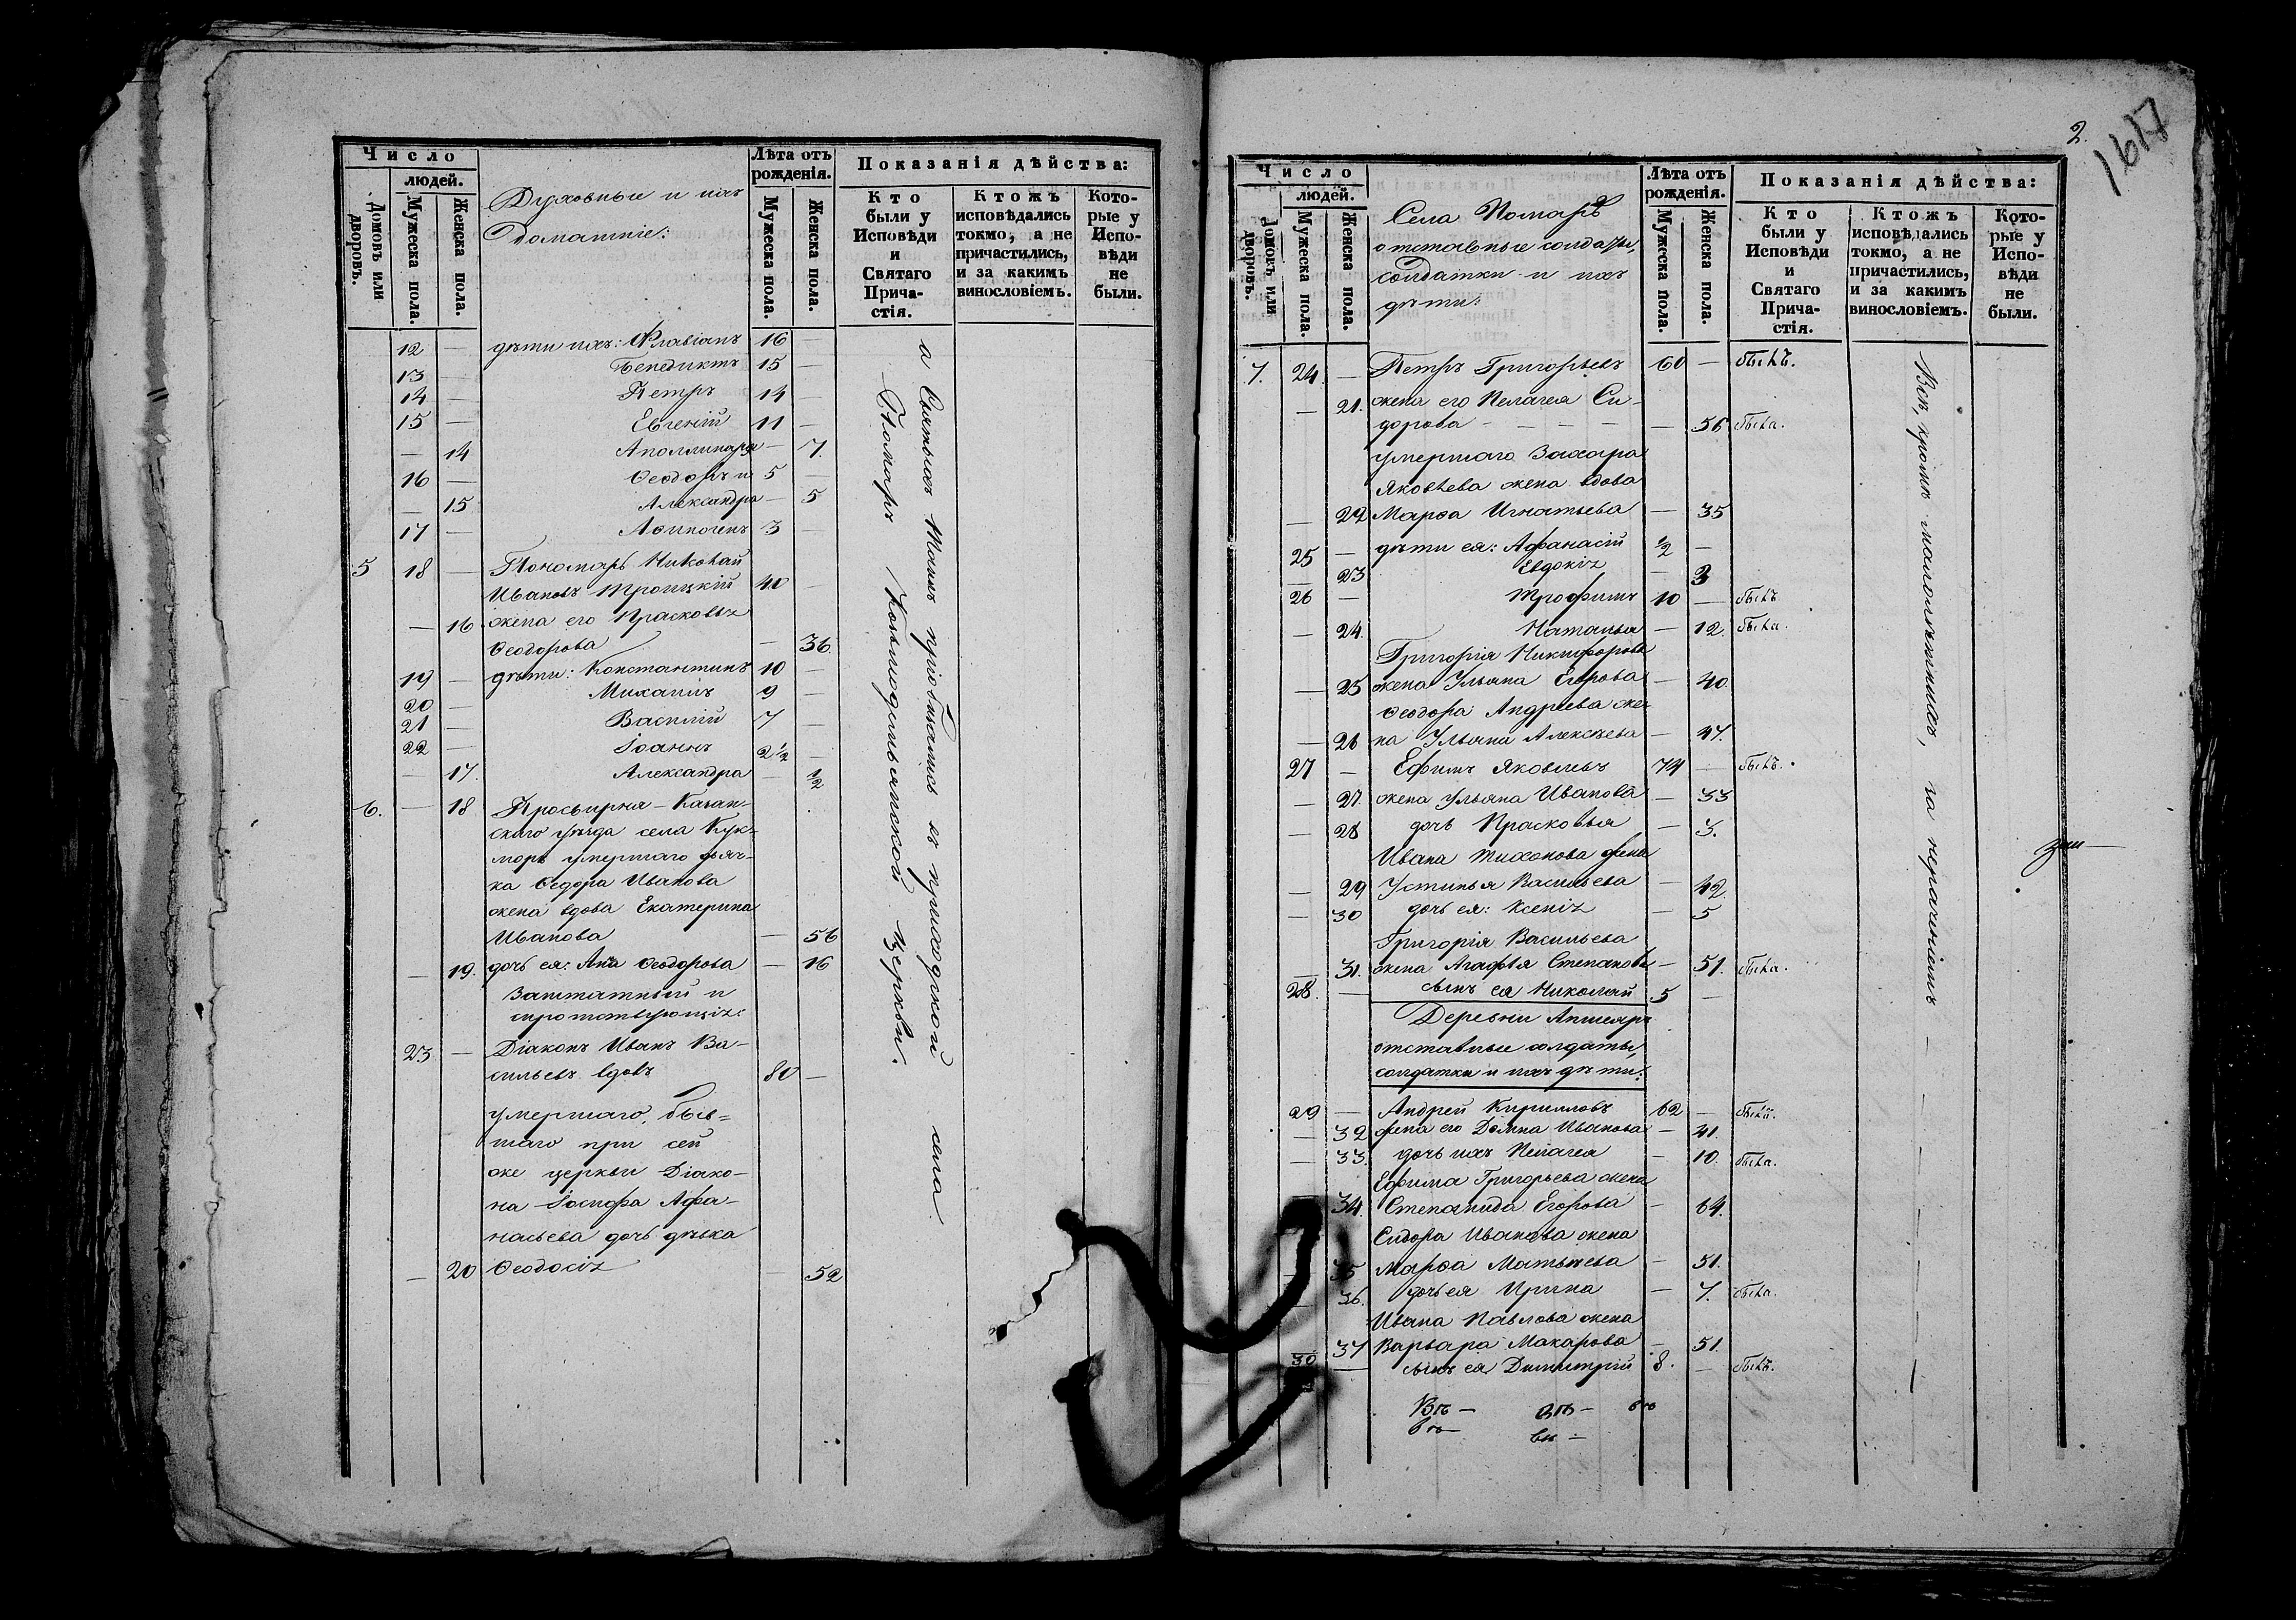 Число
людей.
Домовъ или дворовъ.
Мужеска пола.
Женска пола.
Духовные и ихъ
домашніе:
Лѣта отъ рожденія.
Мужеска пола.
Женска пола.
Показанія дѣйства:
Кто были у Исповѣди и Святаго Прича-стія.
Ктожъ исповѣдались токмо, а не причастились, и за какимъ винословіемъ.
Кото-рые у Испо-вѣди не были.
12 — дѣти ихъ: Флавіанъ 16 —
13 — Бенедиктъ 15 —
14 — Петръ 14 —
15 — Евгеній 11 —
— 14 Аполлинарія — 7.
16 — Ѳеодоръ и 5 —
— 15 Александра — 5
17 — Аѳиногенъ 3
5 18 — Пономарь Николай
Ивановъ Троицкій 40 —
— 16 жена его Прасковья
Ѳеодорова — 36.
19 — дѣти: Константинъ 10 —
20 — Михаилъ 9 —
21 — Василій 7 —
22 — Іоаннъ 2½ —
— 17. Александра — ½
6. — 18 Просвирня – Казан-
скаго уѣзда села Кук-
моръ умершаго дьяч-
ка Ѳедора Иванова
жена вдова Екатерина
Иванова — 56
— 19. дочь ея: Анна Ѳеодорова — 16
Заштатный и
сиротствующія:
23 — Діаконъ Иванъ Ва-
сильевъ вдовъ 80 —
умершаго, быв-
шаго при сей
же церкви Діако-
на Іосифа Афа-
насьева дочь дѣвка
— 20 Ѳеодосія — 52
а Святыхъ Таинъ пріобщались въ приходской
села
церкви.
2.
1617
Число
людей.
Домовъ или дворовъ.
Мужеска пола.
Женска пола.
Села Помаръ
отставные солдаты,
солдатки и ихъ
дѣти:
Лѣта отъ рожденія.
Мужеска пола.
Женска пола.
Показанія дѣйства:
Кто были у Исповѣди и Святаго Прича-стія.
Ктожъ исповѣдались токмо, а не причастились, и за какимъ винословіемъ.
Кото-рые у Испо-вѣди не были.
7. 24. — Петръ Григорьевъ 60 — былъ.
— 21. жена его Пелагея Си-
дорова — 56 была.
умершаго Захара
Яковлева жена вдова
— 22 Марѳа Игнатьева — 35
25 — дѣти ея: Афанасій ½ —
— 23 Евдокія — 3
26 — Трофимъ 10 — былъ
— 24. Наталья — 12. была.
Григорія Никифорова
— 25 жена Ульяна Егорова — 40.
Ѳеодора Андреева же-
— 26 на Ульяна Алексѣева — 47.
27 — Ефимъ Яковлевъ 74 — былъ.
— 27. жена Ульяна Иванова — 33
— 28 дочь Прасковья — 3.
Ивана Тихонова жена
— 29 Устинья Васильева — 42.
— 30 дочь ея: Ксенія — 5
Григорія Васильева
— 31. жена Агафья Степанова — 51. была.
28. — сынъ ея Николай 5 —
Деревни Апшеяръ
отставные солдаты,
солдатки и ихъ дѣти:
29 — Андрей Кирилловъ 62 — былъ.
— 32 жена его Домна Иванова — 41.
— 33. дочь ихъ Пелагея — 10. была.
Ефима Григорьева жена
34. Степанида Егорова — 64.
Сидора Иванова жена
— 35 Марѳа Матвѣева — 51.
— 36. дочь ея Ирина — 7. была.
Ивана Павлова жена
— 37 Варвара Макарова — 51.
30 — сынъ ея Димитрій 8. — былъ.
Всѣ, кромѣ малолѣтнихъ, за нераченіемъ —